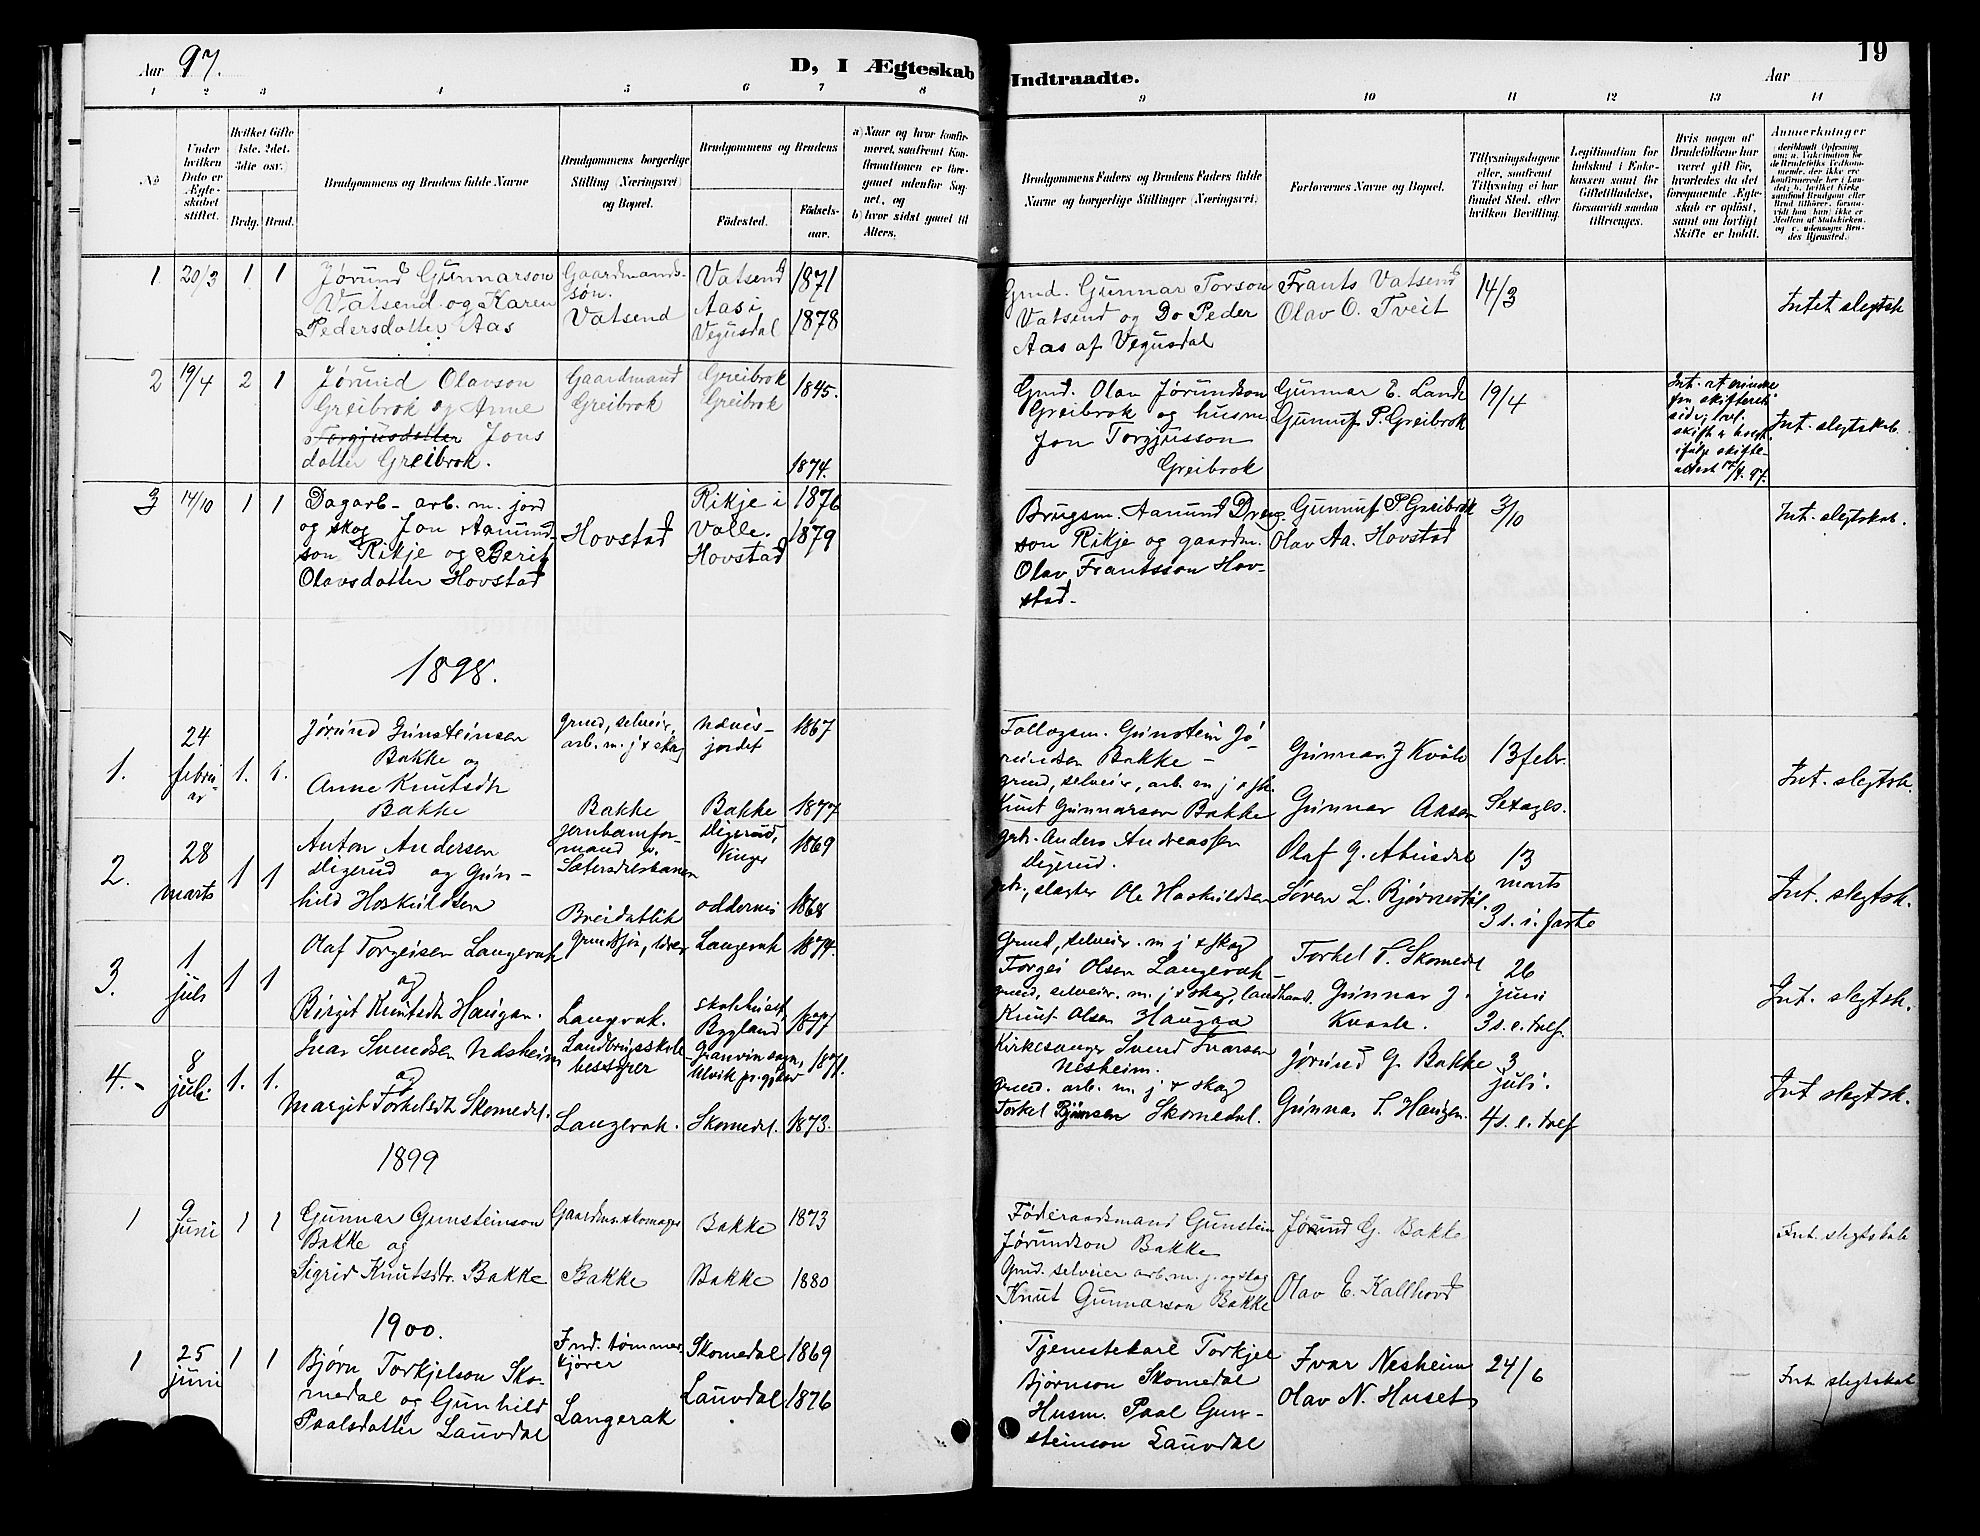 Aar 97.
D, I Ægteskab Indtraadte.
Aar
19
1 2 3 4 5 6 7 8 9 10 11 12 13 14
No
Under hvilken Dato er Ægteskabet stiftet.
Hvilket Gifte 1ste, 2det, 3die osv.
Brdg. Brud.
Brudgommens og Brudens fulde Navne
Brudgommens borgerlige Stilling (Næringsvei) og Bopæl.
Brudgommens og Brudens
Fødested.
Fødselsaar.
a) Naar og hvor konfirmeret, saafremt Konfirmationen er foregaaet udenfor Sognet, og
b) hvor sidst gaaet til Alters.
Brudgommens Faders og Brudens Faders fulde Navne og borgerlige Stillinger (Næringsvei)
Forlovernes Navne og Bopæl.
Tillysningsdagene eller, saafremt Tillysning ei har fundet Sted, efter hvilken Bevilling.
Legitimation for Indskud i Enkekassen samt for Giftetilladelse, forsaavidt saadan tiltrænges.
Hvis nogen af Brudefolkene har været gift før, hvorledes da det foregaaende Ægteskab er opløst, samt om lovligt Skifte er holdt.
Anmerkninger
1 20/3 1 1
Jørund Gunnarson
Vatsend og Karen
Pedersdatter Aas
Gaardmands-
søn.
Vatsend
Vatsend
Aas i
Vegusdal
1871
1878
Gmd. Gunnar Torson
Vatsend og Do Peder
Aas af Vegusdal
Frants Vatsend
Olav O. Tveit
14/3
Intet slegtsk
2 19/4 2 1
Jørund Olavson
Greibrok og Anne
Torgjusdatter Jons
datter Greibrok.
Gaardmand
Greibrok
Greibrok
Greibrok
1845.
1874.
Gmd. Olav Jørundson
Greibrok og husm
Jon Torgjusson
Greibrok
Gunnar E. Landi
Gunnuf P. Greibrok
19/4
Int. slegtskab.
3 14/10 1 1
Dagarb- arb. m. jord
og skog Jon Aanund
son Rikje og Berit
Olavsdatter Hovstad
Hovstad
Rikje i
Valle.
Hovstad
1876
1879
Brugsm. Aanund Dreng
son Rikje og gaardm.
Olav Frantsson Hov-
stad.
Gunnuf P Greibrok
Olav Aa. Hovstad
3/10
Int. slegtskab.
1898.
1. 24 februar 1. 1.
Jørund Gunsteinsen
Bakke og
Anne Knutsdtr
Bakke
grmd, selveir,
arb. m. j & skog
Bakke
jordet
Bakke
1867
1877
Follogsm. Gunstein Jø-
rundsen Bakke -
grmd, selveier, arb. m j & sk.
Knut Gunnarsen Bakke
Gunnar J Kvåle
Gunnar Aasen
13 febr.
Sexages.
Int. slegtsk.
2. 28 marts 1 1
Anton Andersen
Digerud og Gun-
hild Haskildsen
jernbanfor-
mand v.
Sætersdalsbanen
Breidablik
Digerud,
Vinger
oddernes
1869
1868
gbr. Anders Andreassen
Digerud.
gbr, slagter Ole Haskildsen
Olaf G. Abusdal
Søren L. Bjørnestøl.
13
marts
3 s. i. faste
Int. slegtsk.
3. 1 juli 1 1
Olaf Torgeisen Langerak
og
Birgit Knutsdt Haugen.
Langerak.
Langerak
Bygland
1874.
1877
Grmd, selveir. m j & skog
Torgei Olsen Langerak
grmd, selveir. m. j & skog, landhand.
Knut Olsen Haugaa
Torkel T. Skomedal
Gunnar J.
Kvaale.
26
juni
3 s. e. tref.
Int. slegtsk.
4. - 8 juli 1. 1.
Ivar Svendsen Nesheim
og
Margit Torkelsdt Skomedal.
Landbrugsskole-
bestyrer
Langerak.
Granvin sogn,
Ulvik pr.gjeld
Skomedal.
1871.
1873.
Kirkesanger Svend Ivarsen
Nesheim.
grmd. arb. m. j & skog
Torkel Bjønsen Skomedal.
Jørund G. Bakke
Gunnar T. Haugen.
3
juli.
4 s. e. tref
Int slegtsk.
1899
1 9 juni 1 1
Gunnar Gunsteinson
Bakke og
Sigrid Knutsdtr. Bakke
Gaardm. skomager
Bakke
Bakke
Bakke
1873
1880
Føderaadsmand Gunstein
Jørundson Bakke
Gmd. selveier arb. m. j. og skog
Knut Gunnarson Bakke
Jørund G. Bakke
Olav E. Kallhovd
Int. slegtskab
1900.
1 25 juni 1 1
Bjørn Torkjelson Sko-
medal og Gunhild
Paalsdatter Lauvdal
Ind. tømmer
kjører
Langerak
Skomedal
Lauvdal
1869
1876
Tjenestekarl Torkjel
Bjørnson Skomedal
Husm. Paal Gun-
steinson Lauvdal
Ivar Nesheim
Olav N. Huset
24/6
Int. slegtskab